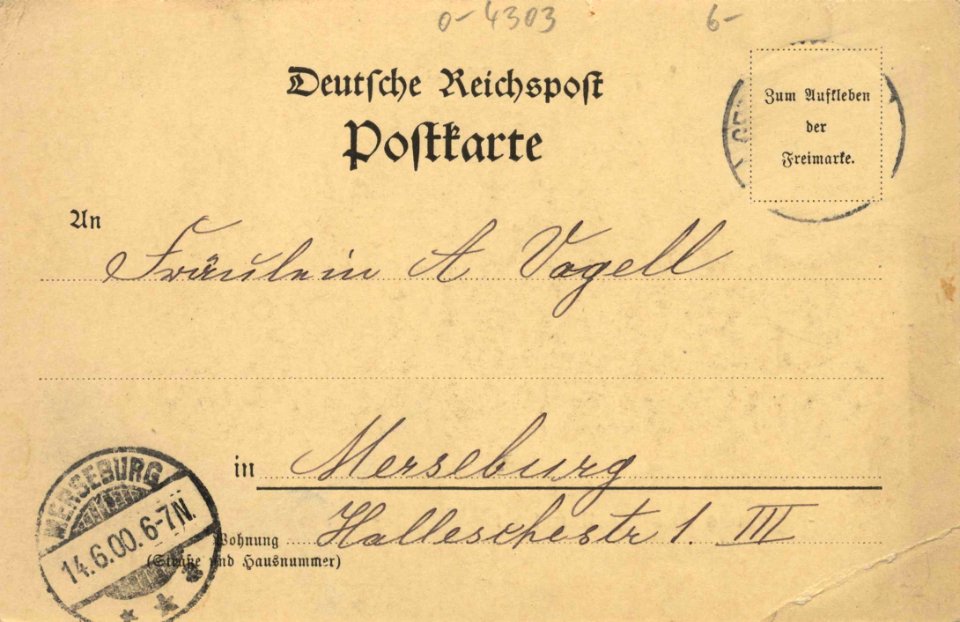 0-4303 6-
Deutsche Reichspost
Postkarte
Zum Aufkleben
der
Freimarke.
An
Fräulein A Vogell
in Merseburg
Wohnung Halleschestr 1. III
(Straße und Hausnummer)
MERSEBURG
14.6.00.6-7N.